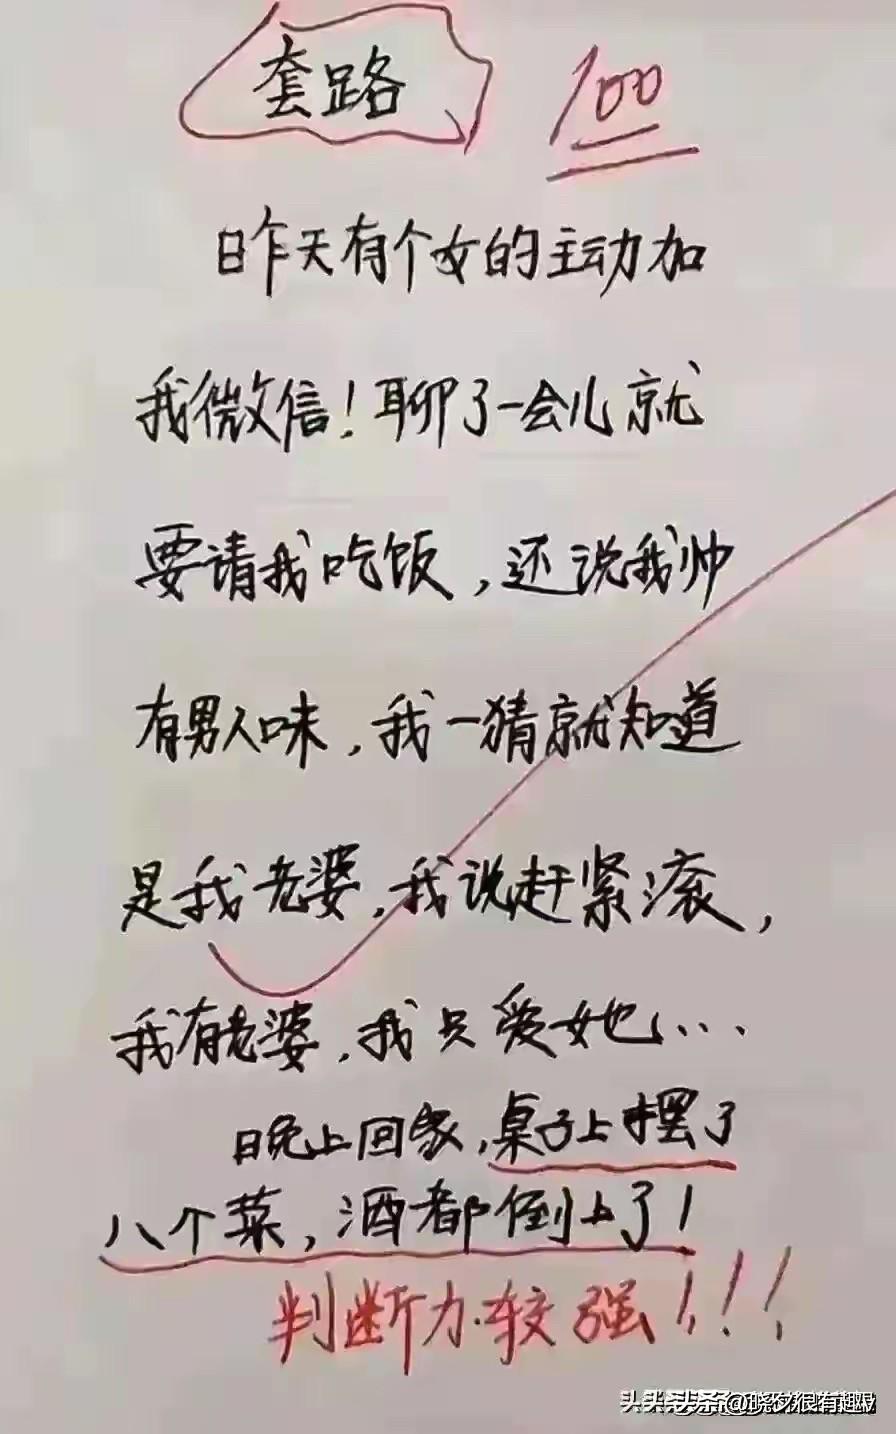 套路 100
昨天有个女的主动加
我微信！聊了一会儿就
要请我吃饭，还说我帅
有男人味，我一猜就知道
是我老婆，我说赶紧滚，
我有老婆，我只爱她…
晚上回家，桌子上摆了
八个菜，酒都倒上了！
判断力较强！！！
头条 @晓 很有趣